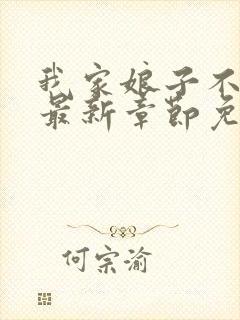 我家娘子不
最新章节免
何宗渝